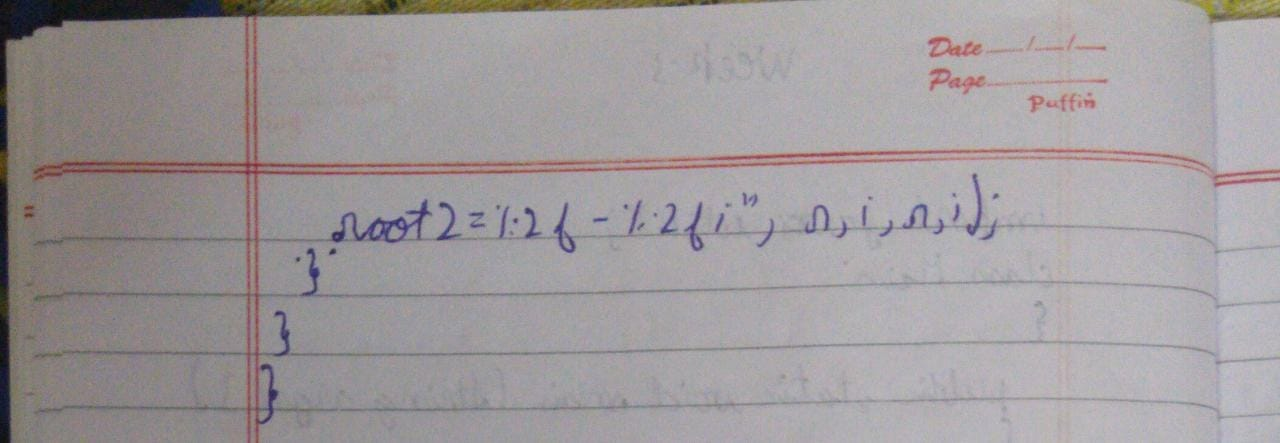 Date __/__/__
Page ______
Puffin
root2=%.2f - %.2fi", r, i, r, i);
}
}
}